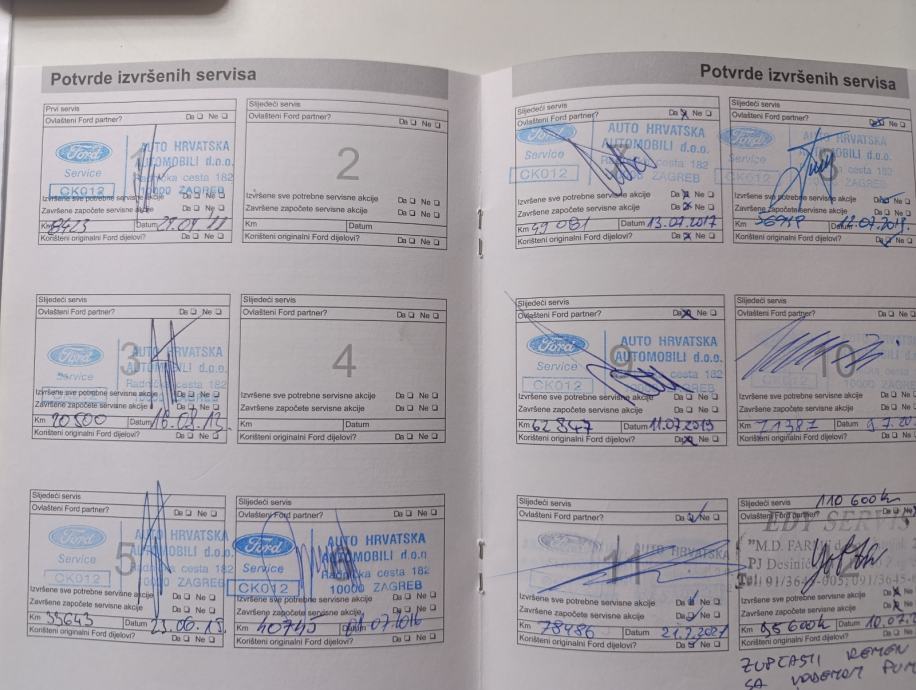 Potvrde izvršenih servisa
Prvi servis
Ovlašteni Ford partner? Da Ne
1
Ford
Service
CK012
AUTO HRVATSKA
AUTOMOBILI d.o.o.
Radnička cesta 182
10000 ZAGREB
Izvršene sve potrebne servisne akcije Da Ne
Završene započete servisne akcije Da Ne
Km 8423 Datum
Korišteni originalni Ford dijelovi? Da Ne
Slijedeći servis
Ovlašteni Ford partner? Da Ne
2
Izvršene sve potrebne servisne akcije Da Ne
Završene započete servisne akcije Da Ne
Km Datum
Korišteni originalni Ford dijelovi? Da Ne
Slijedeći servis
Ovlašteni Ford partner? Da Ne
3
Ford
Service
AUTO HRVATSKA
AUTOMOBILI d.o.o.
Radnička cesta 182
10000 ZAGREB
Izvršene sve potrebne servisne akcije Da Ne
Završene započete servisne akcije Da Ne
Km 20500 Datum
Korišteni originalni Ford dijelovi? Da Ne
Slijedeći servis
Ovlašteni Ford partner? Da Ne
4
Izvršene sve potrebne servisne akcije Da Ne
Završene započete servisne akcije Da Ne
Km Datum
Korišteni originalni Ford dijelovi? Da Ne
Slijedeći servis
Ovlašteni Ford partner? Da Ne
5
Ford
Service
CK012
AUTO HRVATSKA
AUTOMOBILI d.o.o.
Radnička cesta 182
10000 ZAGREB
Izvršene sve potrebne servisne akcije Da Ne
Završene započete servisne akcije Da Ne
Km 33643 Datum
Korišteni originalni Ford dijelovi? Da Ne
Slijedeći servis
Ovlašteni Ford partner? Da Ne
6
Ford
Service
CK012
AUTO HRVATSKA
AUTOMOBILI d.o.o.
Radnička cesta 182
10000 ZAGREB
Izvršene sve potrebne servisne akcije Da Ne
Završene započete servisne akcije Da Ne
Km 40745 Datum 01.07.2016
Korišteni originalni Ford dijelovi? Da Ne
Potvrde izvršenih servisa
Slijedeći servis
Ovlašteni Ford partner? Da Ne
Ford
Service
CK012
AUTO HRVATSKA
AUTOMOBILI d.o.o.
cesta 182
10000 ZAGREB
Izvršene sve potrebne servisne akcije Da Ne
Završene započete servisne akcije Da Ne
Km 49 081 Datum 13.07.2017
Korišteni originalni Ford dijelovi? Da Ne
Slijedeći servis
Ovlašteni Ford partner? Da Ne
8
Izvršene sve potrebne servisne akcije
Završene započete servisne akcije Da Ne
Km Datum
Korišteni originalni Ford dijelovi? Da Ne
Slijedeći servis
Ovlašteni Ford partner? Da Ne
9
Ford
Service
CK012
AUTO HRVATSKA
AUTOMOBILI d.o.o.
cesta 182
ZAGREB
Izvršene sve potrebne servisne akcije Da Ne
Završene započete servisne akcije
Km 62 847 Datum 11.07.2019
Korišteni originalni Ford dijelovi? Da Ne
Slijedeći servis
Ovlašteni Ford partner? Da Ne
10
Izvršene sve potrebne servisne akcije Da Ne
Završene započete servisne akcije Da Ne
Km 71387 Datum
Korišteni originalni Ford dijelovi? Da Ne
Slijedeći servis
Ovlašteni Ford partner? Da Ne
11
Izvršene sve potrebne servisne akcije Da Ne
Završene započete servisne akcije Da Ne
Km 78486 Datum 21.7.2021
Korišteni originalni Ford dijelovi? Da Ne
110 600 km
Slijedeći servis
Ovlašteni Ford partner? Da Ne
EDY SERVIS
"M.D.
PJ Desinić
Izvršene sve potrebne servisne akcije Da Ne
Završene započete servisne akcije Da Ne
Km Datum
Korišteni originalni Ford dijelovi? Da Ne
ZUPČASTI REMEN
SA VODENOM PUM